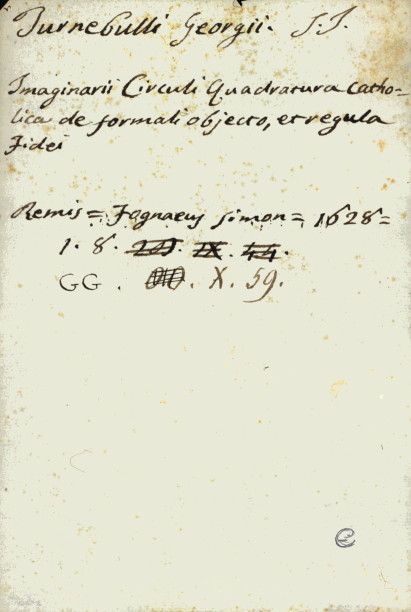 Turnebulli Georgii. S.J.
Imaginarii Circuli Quadratura catho=
lica de formali objecto, et regula
Fidei
Remis = Fognaeus Simon = 1628=
1. 8. IX. 44.
GG. X. 59.